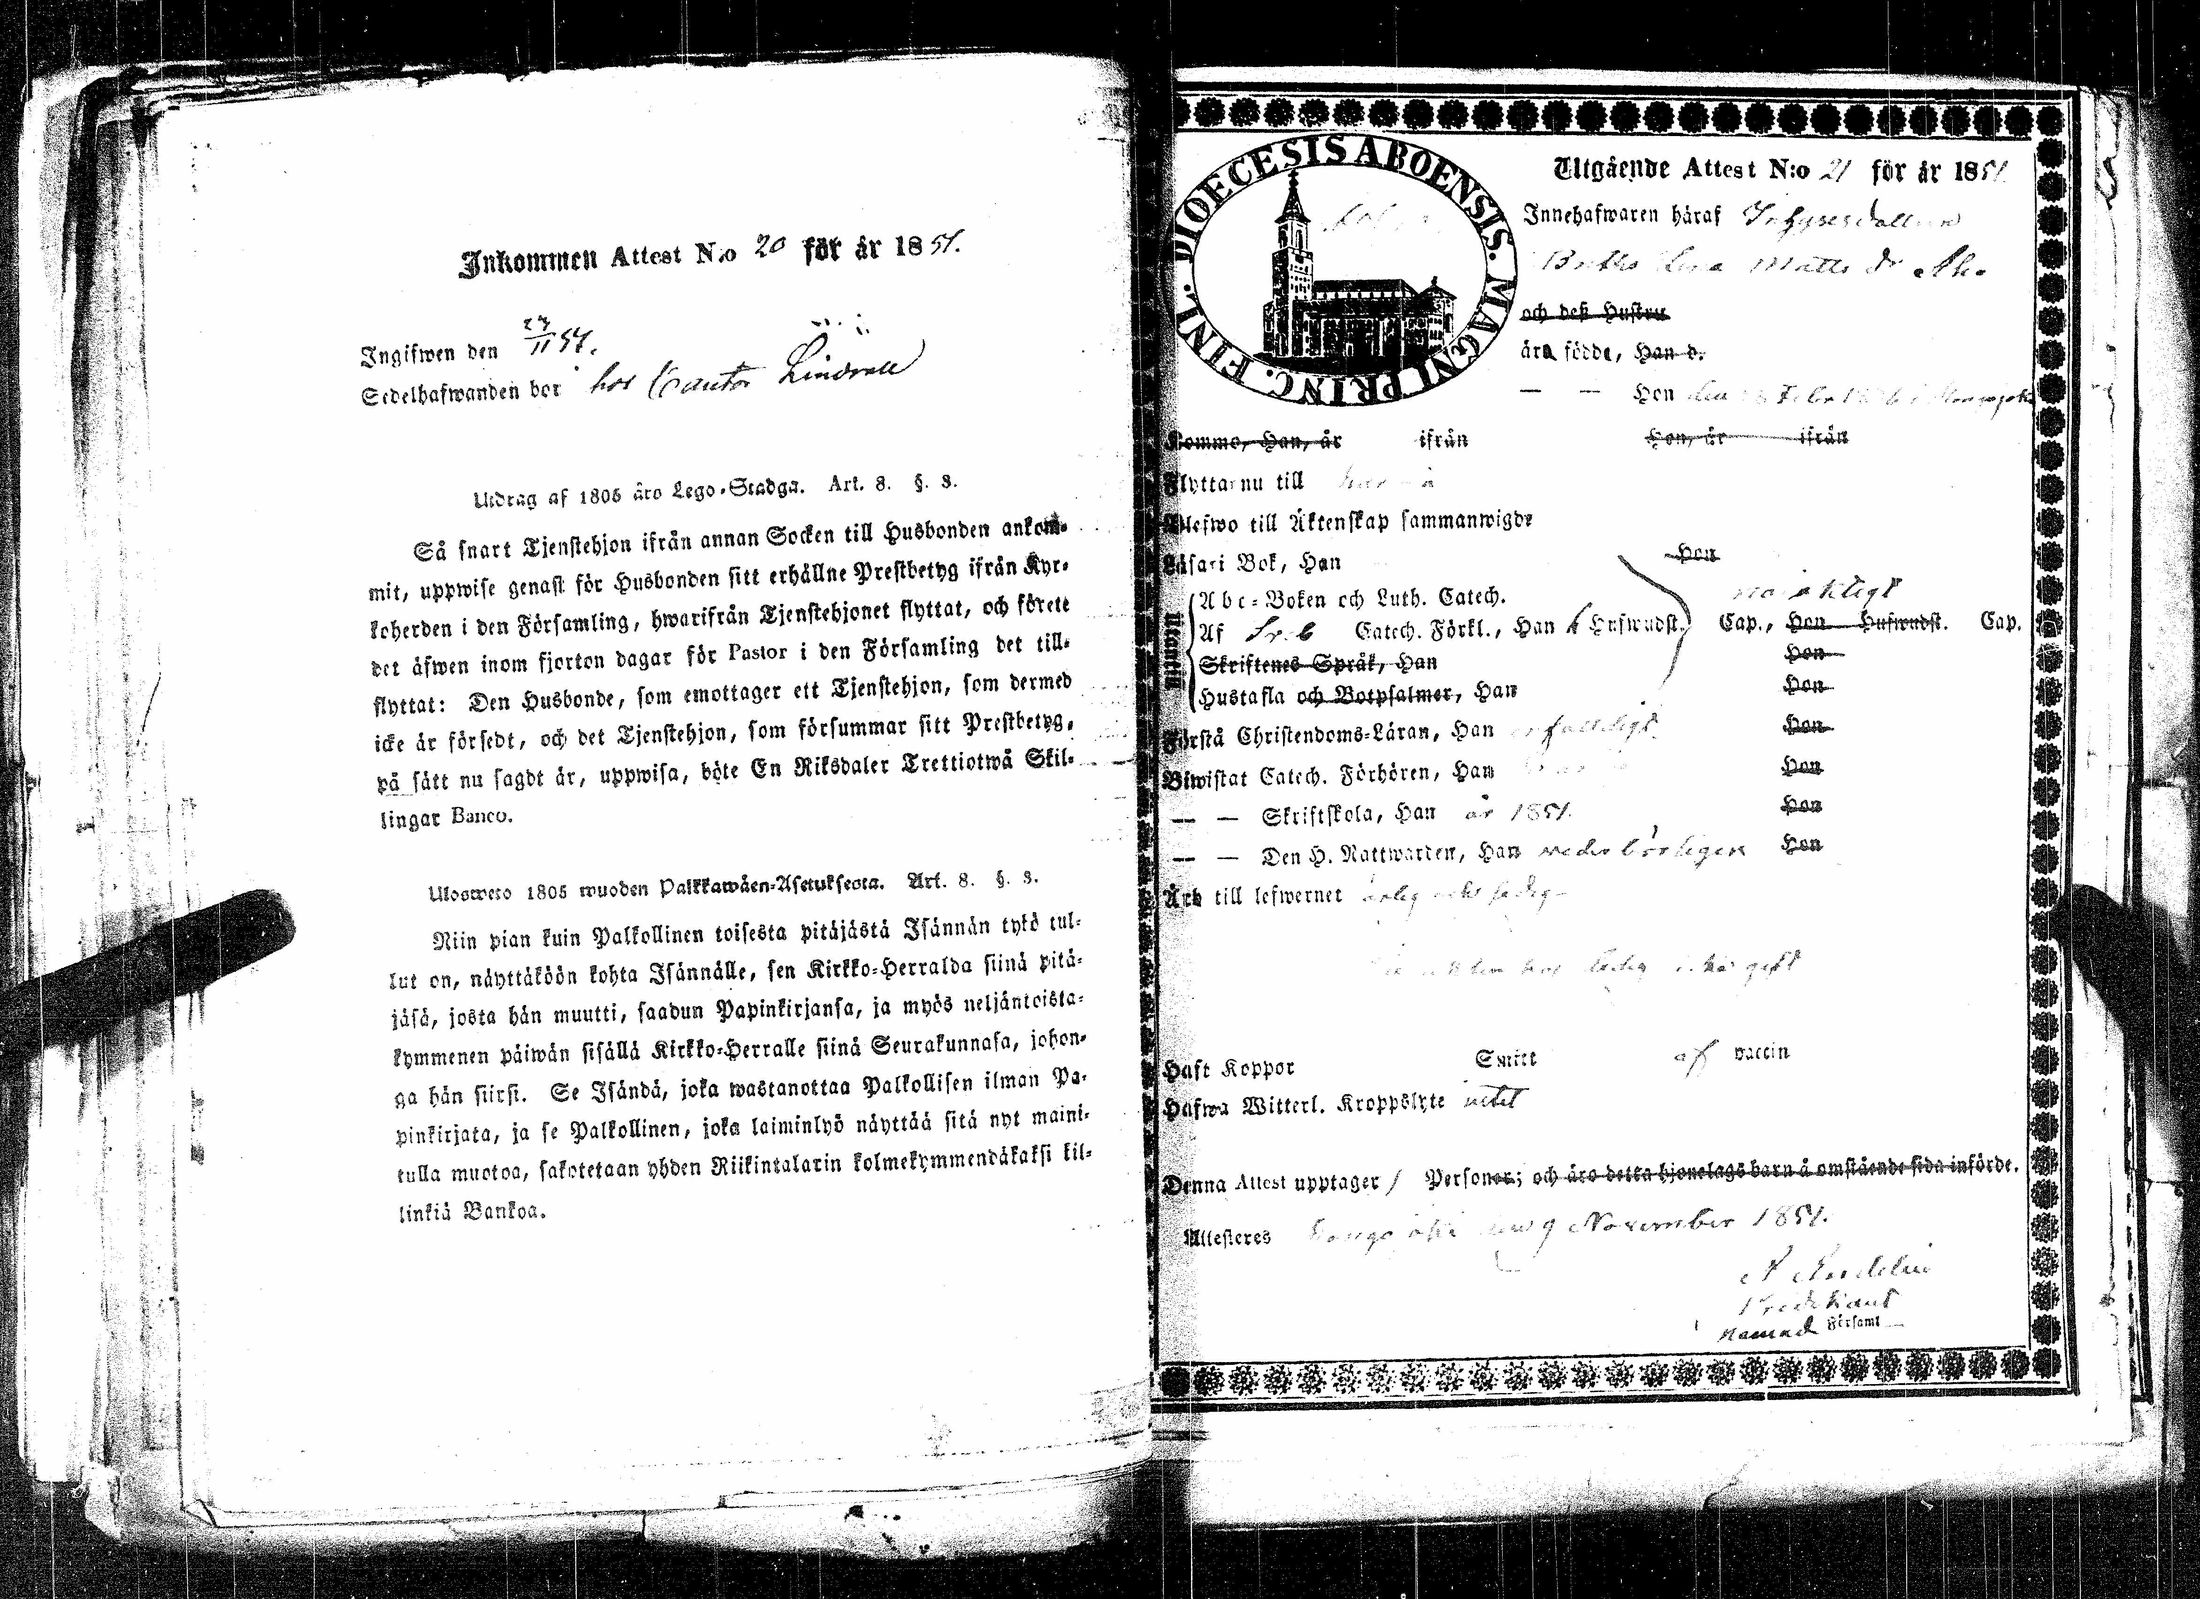 Inkommen Attest N:o 20 för år 1851.
Ingifwen den 27/11 51.
Sedelhafwanden bor hos Cantor Lindvall
Utdrag af 1805 åro Lego-Stadga. Art. 8. §. 3.
Så snart Tjenstehjon ifrån annan Socken till Husbonden ankom-
mit, uppwise genast för Husbonden sitt erhållne Prestbetyg ifrån Kyr-
koherden i den Församling, hwarifrån Tjenstehjonet flyttat, och förete
det äfwen inom fjorton dagar för Pastor i den Församling det till-
flyttat: Den Husbonde, som emottager ett Tjenstehjon, som dermed
icke är försedt, och det Tjenstehjon, som försummar sitt Prestbetyg,
på sätt nu sagdt är, uppwisa, böte En Riksdaler Trettiotwå Skil-
lingar Banco.
Ulosweto 1805 wuoden Palkkawäen-Asetuksesta. Art. 8. §. 3.
Niin pian kuin Palkollinen toisesta pitäjästä Isännän tykö tul-
lut on, näyttäköön kohta Isännälle, sen Kirkko-Herralda siinä pitä-
jäsä, josta hän muutti, saadun Papinkirjansa, ja myös neljäntoista-
kymmenen päiwän sisällä Kirkko-Herralle siinä Seurakunnasa, johon-
ga hän siirsi. Se Isändä, joka wastanottaa Palkollisen ilman Pa-
pinkirjata, ja se Palkollinen, joka laiminlyö näyttää sitä nyt maini-
tulla muotoa, sakotetaan yhden Riikintalarin kolmekymmendäkaksi kil-
linkiä Bankoa.
DIOECESIS ABOENSIS. MAGNI PRINC. FINL.
Utgående Attest N:o 21 för år 1851
Innehafwaren häraf
Lena Matts dr
och deß Hustru
äro födde, Han d.
— — Hon den Febr
Komme, Han, år ifrån Hon, år ifrån
Flytta nu till
Blefwo till Äktenskap sammanwigde
Läsa i Bok, Han Hon
Utantill
Abc-Boken och Luth. Catech.
Af Catech. Förkl., Han Hufwudst. Cap., Hon Hufwudst. Cap.
Skriftenes Språk, Han Hon
Hustafla och Botpsalmer, Han Hon
Förstå Christendoms-Läran, Han Hon
Biwistat Catech. Förhören, Han Hon
— — Skriftskola, Han år 1851. Hon
— — Den H. Nattwarden, Han vederbörligen Hon
Äro till lefwernet ärlig och sedig
ledig gift
Haft Koppor Smitt af vaccin
Hafwa Witterl. Kroppslyte intet
Denna Attest upptager 1 Personer; och äro detta hjonelags barn å omstående sida införde.
Attesteres den 9 November 1851.
Predikant
Församl